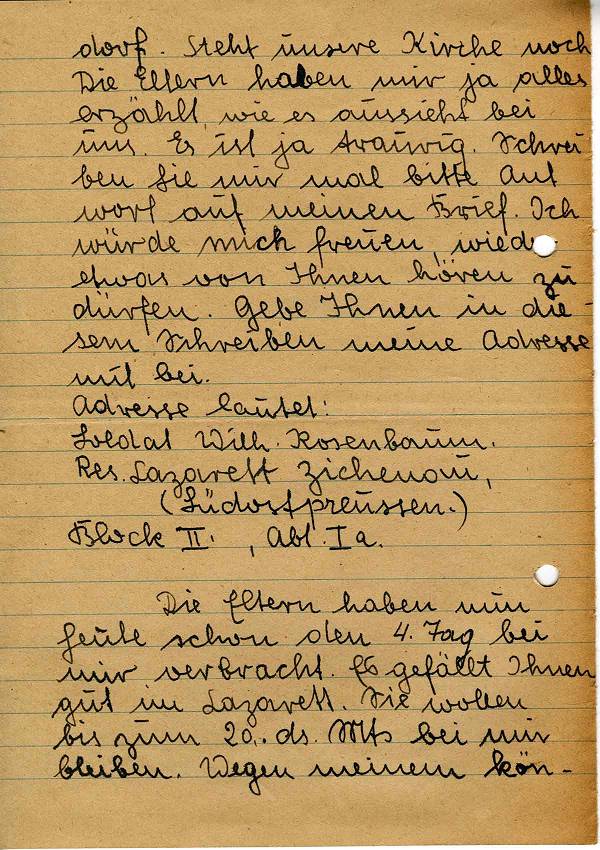 dorf. Steht unsere Kirche noch
Die Eltern haben mir ja alles
erzählt, wie es aussieht bei
uns. Es ist ja traurig. Schrei
ben Sie mir mal bitte Ant
wort auf meinen Brief. Ich
würde mich freuen, wieder
etwas von Ihnen hören zu
dürfen. Gebe Ihnen in die-
sem Schreiben meine Adresse
mit bei.
Adresse lautet:
Soldat Wilh. Rosenbaum.
Res. Lazarett Zichenau,
(Südostpreussen.)
Block II. , Abt. Ia.
Die Eltern haben nun
heute schon den 4. Tag bei
mir verbracht. Es gefällt Ihnen
gut im Lazarett. Sie wollen
bis zum 20. ds. Mts bei mir
bleiben. Wegen meinem kön-